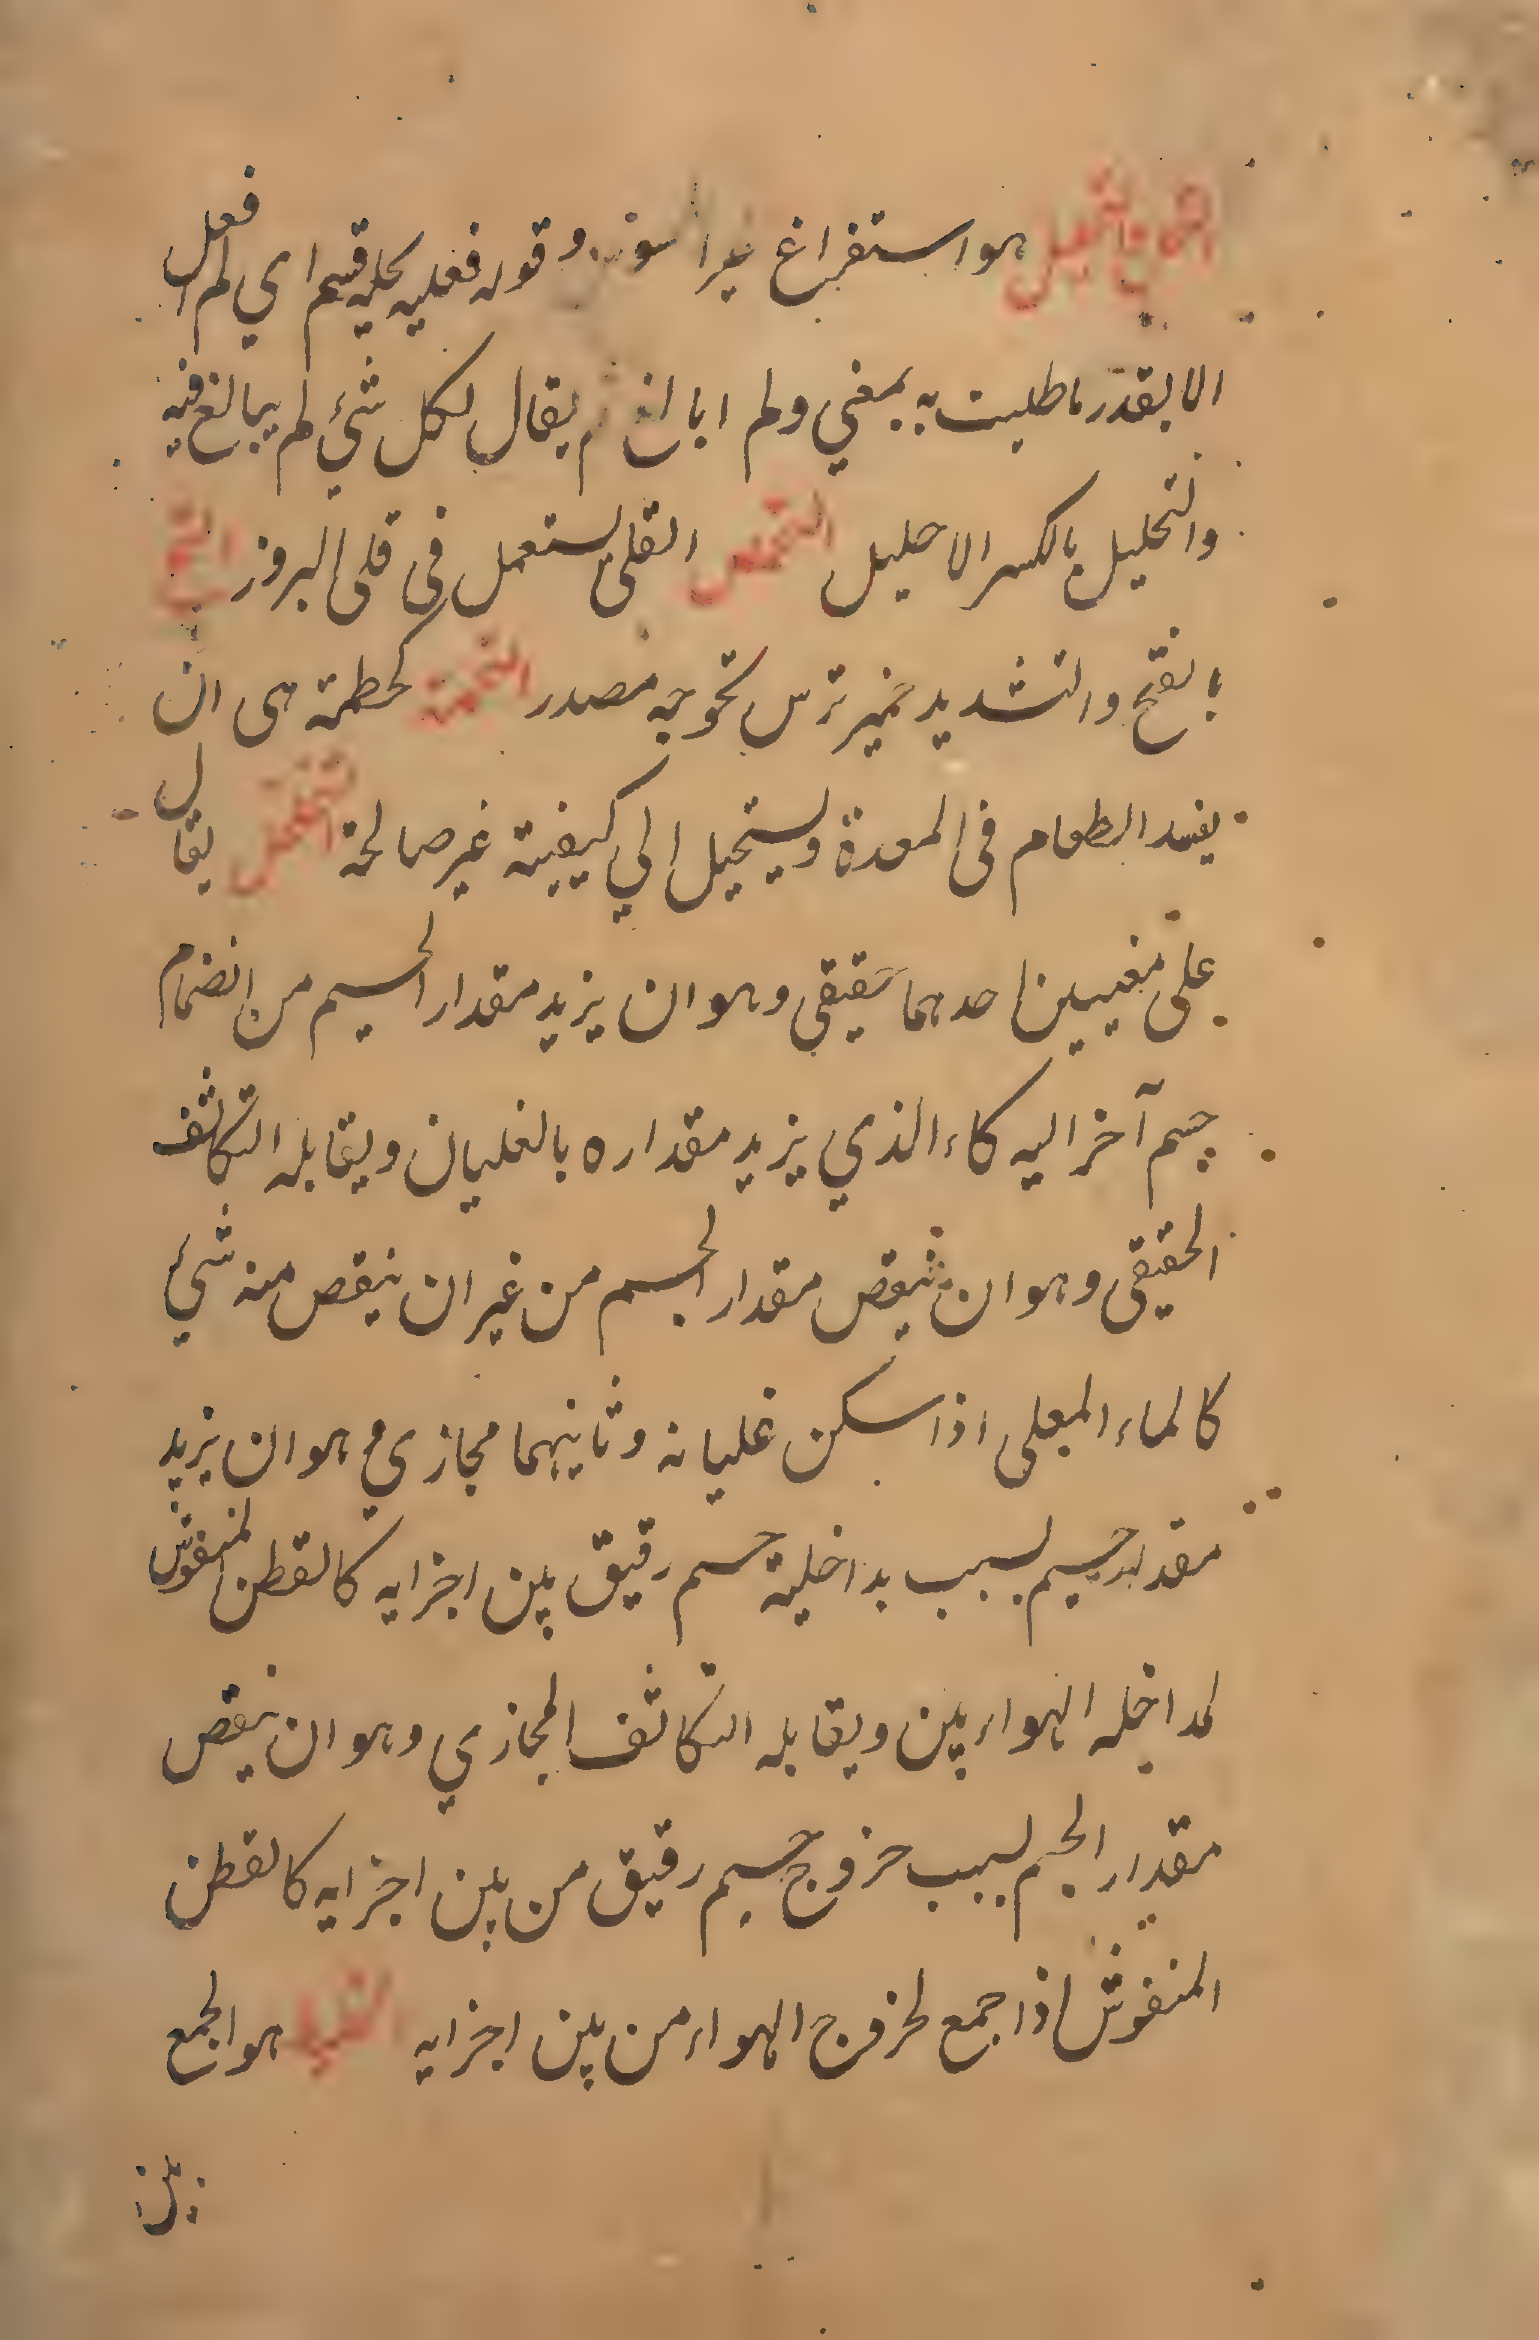 هو استفراغ غير وقوله فعليه تحلية قسم اي لم افعل
الا بقدر ما طلبت به يمفي ولم ابالغ ثم يقال لكل شيء لم يبالغ فيه
والتحليل بالكسر الاحليل التحميص القلى يستعمل في قلى البروز
بالفتح والتشديد خمير ترس تخوجه مصدر التخمة كحطمة هى ان
يفسد الطعام فى المعدة ويستحيل الي كيفية غير صالحة التخلخل يقال
على معنيين احدهما حقيقى وهو ان يزيد مقدار الجسم من انضمام
جسم آخر اليه كاء الذي يزيد مقداره بالغليان ويقابله التكاثف
الحقيقى وهو ان ينقص مقدار الجسم من غير ان ينقص منه شيء
كالماء المغلى اذا سكن غليانه وثانيهما مجازي وهو ان يزيد
مقدار جسم بسبب بداخلية جسم رقيق بين اجزايه كالقطن المنفوش
لمداخله الهواء بين ويقابله التكاثف المجازي وهو ان ينقص
مقدار الجسم بسبب خروج جسم رقيق من بين اجزايه كالقطن
المنفوش اذا جمع لخروج الهواء من بين اجزايه هو الجمع
بين